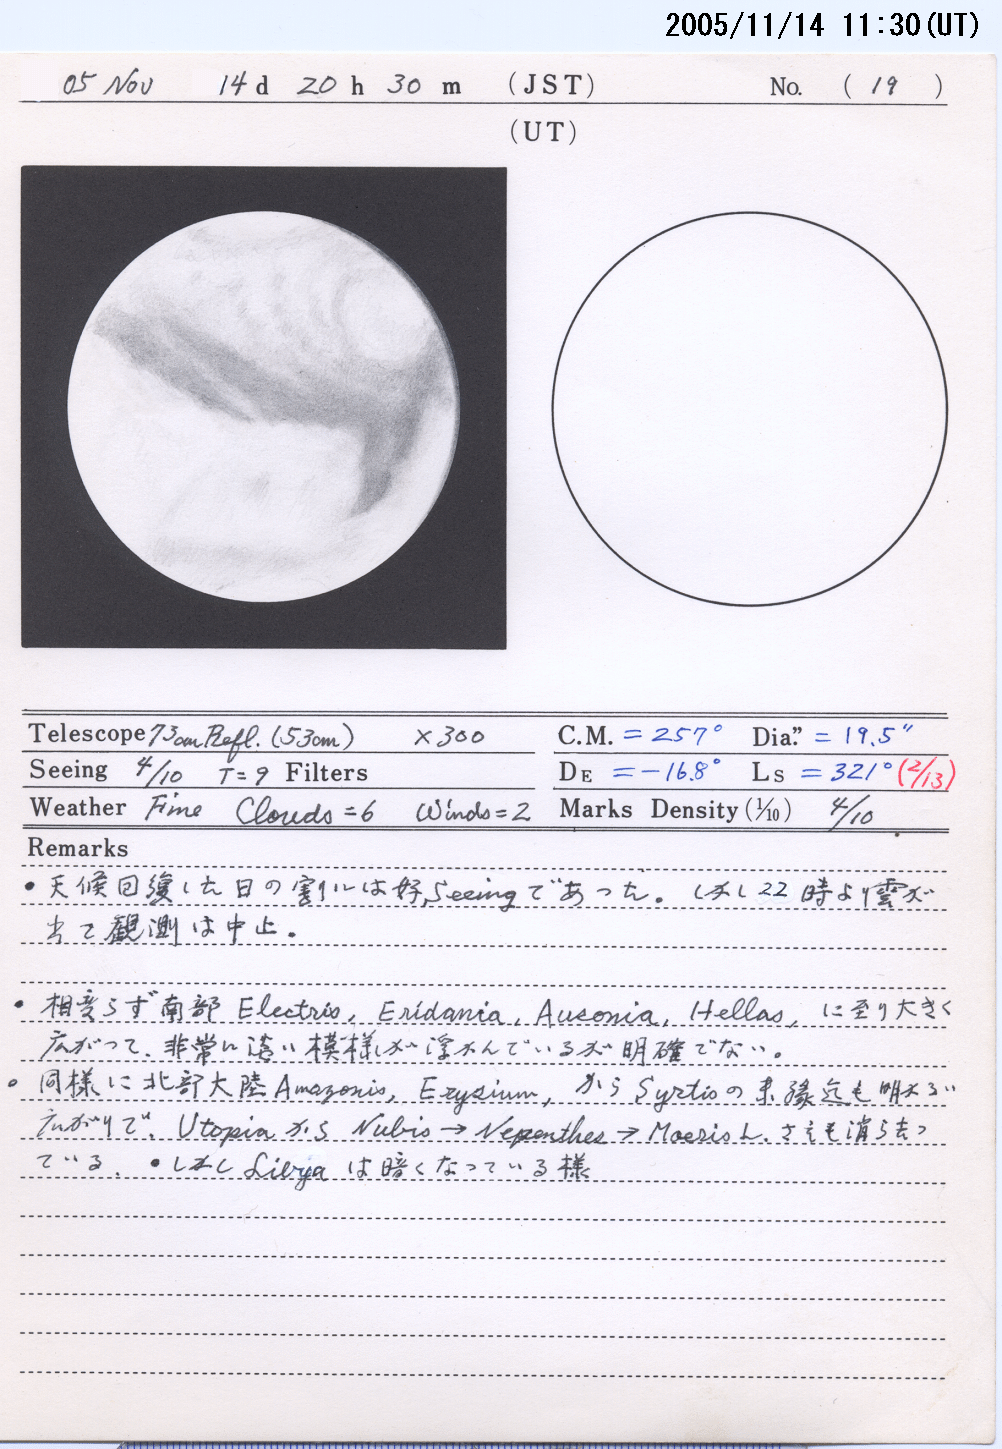 2005/11/14 11:30(UT)
05 Nov 14 d 20 h 30 m (JST) No. ( 19 )
(UT)
Telescope 73cm Refl. (53cm) ×300 C.M. = 257° Dia." = 19.5"
Seeing 4/10 T=9 Filters DE = -16.8° Ls = 321° (2/13)
Weather Fine Clouds=6 Winds=2 Marks Density (1/10) 4/10
Remarks
• 天候回復した日の割りには好Seeingであった。しかし22時より雲が
出て観測は中止。
• 相変らず南部 Electris, Eridania, Ausonia, Hellas, に至り大きく
広がって、非常に淡い模様が浮かんでいるが明確でない。
• 同様に北部大陸 Amazonis, Erysium, からSyrtisの東縁迄も明るい
広がりで、Utopia から Nubis → Nepenthes → Moeris L. さえも消え去っ
ている. • しかし Libya は暗くなっている様